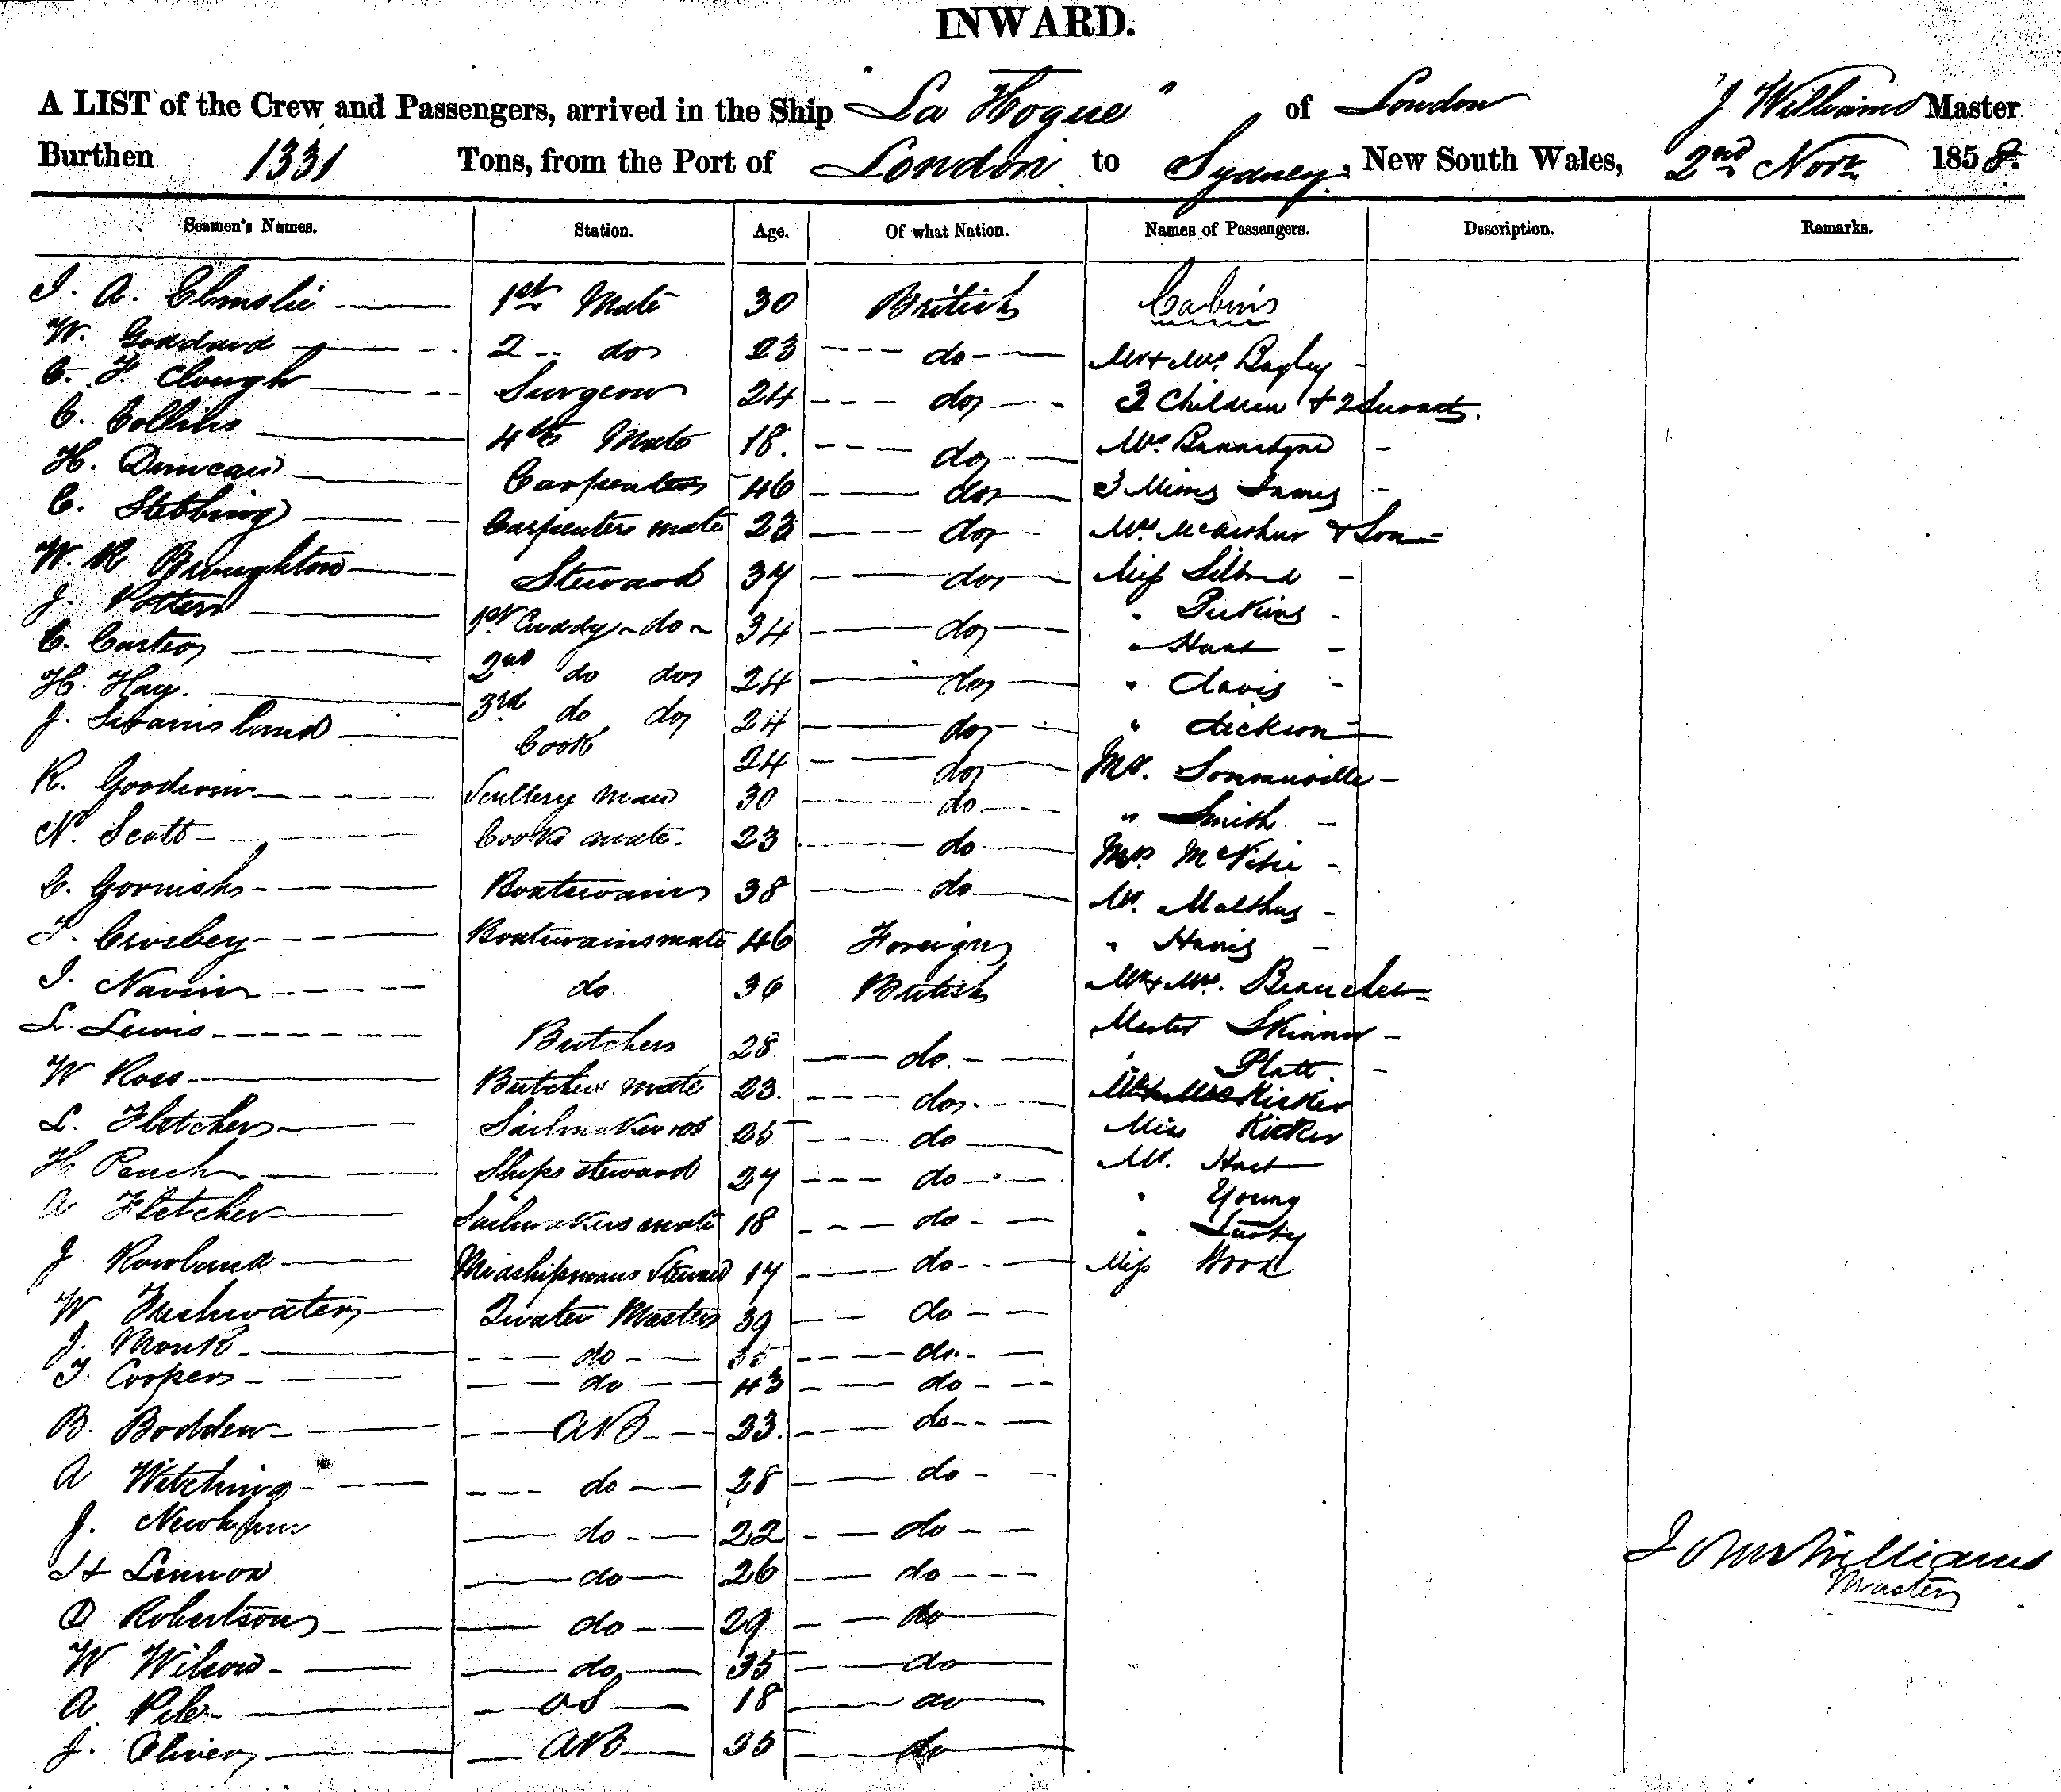 INWARD.
A LIST of the Crew and Passengers, arrived in the Ship "La Hogue" of London J Williams Master
Burthen 1331 Tons, from the Port of London to Sydney, New South Wales, 2nd Novr 1858.
Seamen's Names. Station. Age. Of what Nation. Names of Passengers. Description. Remarks.
J. A. Elmslie 1st Mate 30 British Cabin
W. Goddard 2 do 23 do Mr & Mrs Bayley
C. F. Clough Surgeon 24 do 3 Children & 2 Servants.
C. Collins 4th Mate 18. do Mrs
H. Duncan Carpenter 46 do 3 Misses James
C. Stebbing Carpenters mate 23 do Mrs McArthur & Son
W. R Broughton Steward 37 do Miss
J. Potter 1st Cuddy do 34 do " Perkins
C. Carter 2nd do do 24 do "
H. Hay. 3rd do do 24 do " Davis
J. Swainsland Cook 24 do " Dickson
R. Goodwin Scullery man 30 do Mr. Sommerville
N. Scott Cooks mate 23 do " Smith
C. Gornish Boatswain 38 do Mrs
T. Crosbey Boatswains mate 46 Foreign Mr. Malthus
J. Navin do 36 British " Harris
L. Lewis Butcher 28 do Mr & Mrs.
W Ross Butchers mate 23. do Master Skinner
L. Fletcher Sailmaker 25 do " Platt
H. Peach Ships steward 27 do Kicker
A Fletcher Sailmakers mate 18 do Miss Kicker
J. Rowland Midshipmans Steward 17 do Mr. Hart
W Freshwater Quater Master 39 do " Young
J. Monk do 35 do "
T. Cooper do 43 do Miss Wood
B. Bodden AB 23. do
A Witching do 28 do
J. do 22 do
H Lennox do 26 do
D Robertson do 29 do
W Wilson do 35 do
A Pile OS 18 do
J. Oliver AB 35 do
John Williams
Master